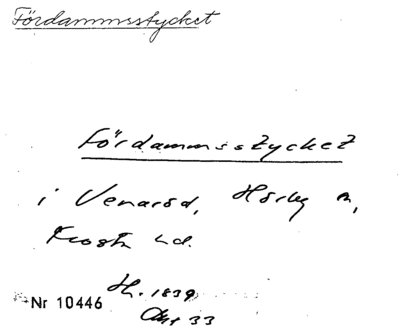 Fördammsstycket
Fördammsstycket
i Venaröd, Hörby sn,
Frosta hd.
H. 1839
Nr 10446
Akt 33